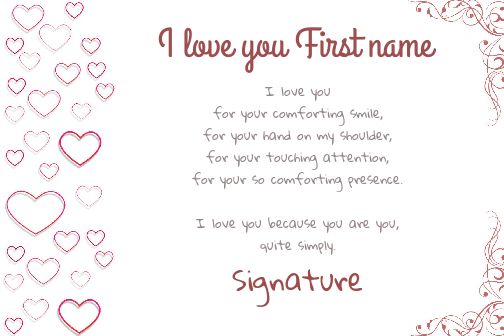 I love you First name
I love you
for your comforting smile,
for your hand on my shoulder,
for your touching attention,
for your so comforting presence.
I love you because you are you,
quite simply.
Signature